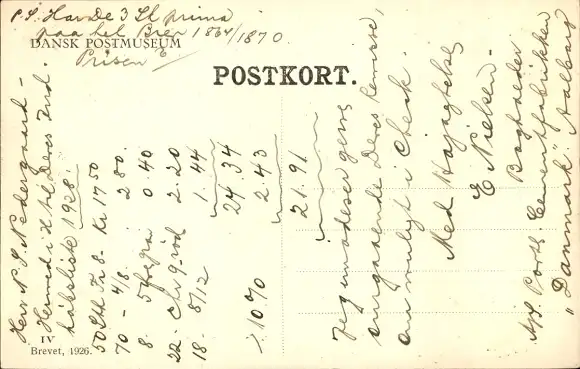 P.S. Har De 3 Sk prima
paa hel Brev 1864/1870.
Prisen
DANSK POSTMUSEUM
POSTKORT.
Herr N. S. Nedergaard -
Hermed i H til Deres Ind.
købsliste 1928.
50 Stk Fr 8 - Kr 17 50
70 - 4/8 2 80.
8. 0 40
22. 2.20
18 - 8/12 1.44
24.34
% 10 70 2.43
21.91
Jeg imødeser gerne
angaaende Deres Remisse,
om muligt i Check.
Med Højagtelse
E Nielsen -
Bogholder
A/S Portl. Cementfabrikken
"Danmark" Aalborg
IV
Brevet, 1926.